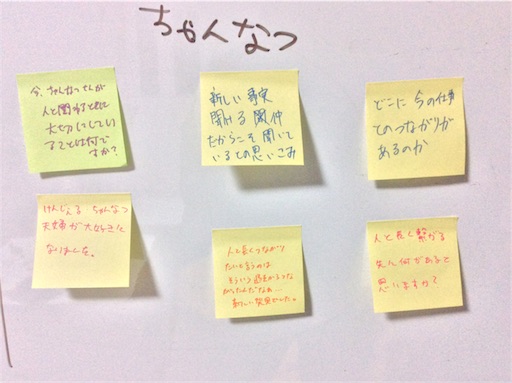 ちゃんなつ
今、ちゃんなつさんが
人と関わるときに
大切にしてい
ることは何で
すか?
新しい事実
聞ける関係
だからこそ聞いて
いるての思いこみ
どこに今の仕事
てのつながりが
あるのか
けんじぇる ちゃんなつ
夫婦が大好きに
なりました。
人と長くつながり
たいと言うのは
そういう過去からつな
がってたんだなぁ…
新しい発見だった。
人と長く繋がる
先に何があると
思いますか?